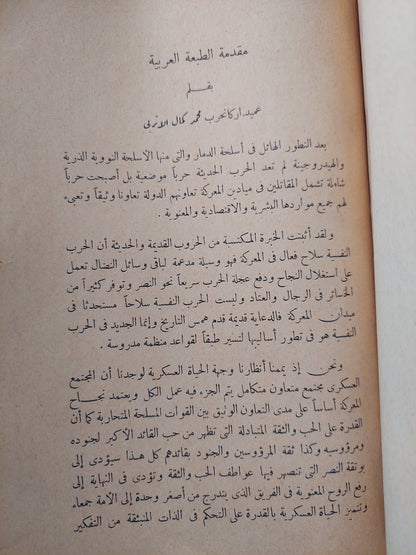 مقدمة الطبعة العربية
بقـــلم
عميد.اركانحرب محمد كمال الاتربى
بعد التطور الهائل فى أسلحة الدمار والتى منها الاسلحة النووية الذرية
والهيدروجينة لم تعد الحرب الحديثة حرباً موضعية بل أصبحت حرباً
شاملة تشمل المقاتلين فى ميادين المعركة تعاونهم الدولة تعاونا وثيقاً وتعبىء
لهم جميع مواردها البشرية والاقتصادية والمعنوية .
ولقد أثبتت الخبرة المكتسبة من الحروب القديمة والحديثة أن الحرب
النفسية سلاح فعال فى المعركة فهو وسيلة مدعمة لباقى وسائل النضال تعمل
على استغلال النجاح ودفع عجلة الحرب سريعاً نحو النصر وتوفر كثيراً من
الخسائر فى الرجال والعتاد وليست الحرب النفسية سلاحاً مستحدثا فى
ميدان المعركة فالدعاية قديمة قدم همس التاريخ وإنما الجديد فى الحرب
النفسية هو فى تطور أساليبها لتسير طبقا لقواعد منظمة مدروسة .
ونحن إذ يممنا أنظارنا وجهة الحياة العسكرية لوجدنا أن المجتمع
العسكرى مجتمع متعاون متكامل يتم الجزء فيه عمل الكل ويعتمد نجاح
المعركة أساساً على مدى التعاون الوثيق بين القوات المسلحة المتحاربة كما أن
القدرة على الحب والثقة المتبادلة التى تظهر من حب القائد الأكبر لجنوده
ومرؤوسيه وكذا ثقة المرؤوسين والجنود بقائدهم كل هذا سيؤدى إلى
بوتقة النصر التى تنصهر فيها عواطف الحب والثقة وتؤدى فى النهاية إلى
رفع الروح المعنوية فى الفريق الذى يتدرج من أصغر وحدة إلى الأمة جمعاء
وتتميز الحياة العسكرية بالقدرة على التحكم فى الذات المنبثقة من التفكير